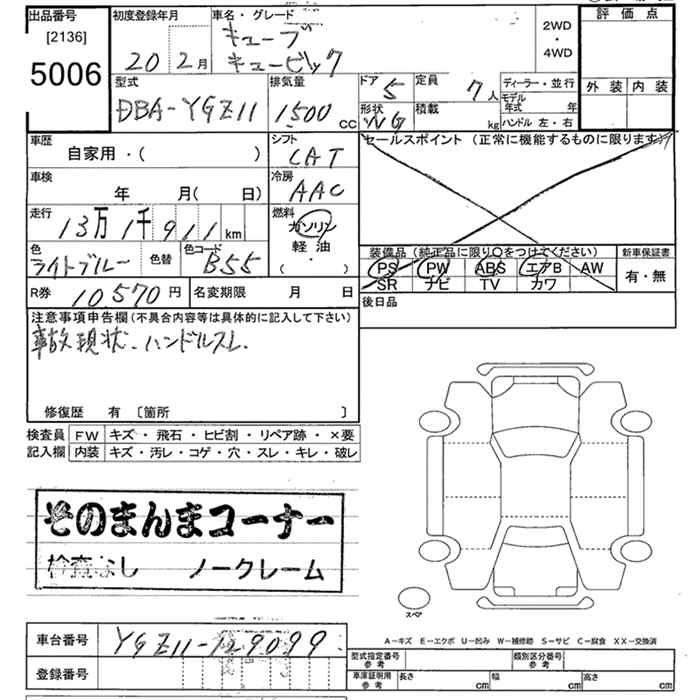 出品番号
[2136]
5006
初度登録年月
20 2月
車名・グレード
キューブ
キュービック
2WD
・
4WD
評価点
外装 内装
型式
DBA-YGZ11
排気量
1500 CC
ドア 5
定員 7人
形状 WG
積載 kg
ディーラー・並行
モデル年式 年
ハンドル 左・右
車歴
自家用・( )
シフト
CAT
セールスポイント (正常に機能するものに限ります)
車検
年 月( 日)
冷房
AAC
走行
13万1千911km
燃料
ガソリン
軽油
( ・ )
色
ライトブルー
色替
色コード
B55
装備品 (純正品に限り○をつけてください)
PS PW ABS エアB AW
SR ナビ TV カワ
新車保証書
有・無
R券 10,570円
名変期限 月 日
後日品
注意事項申告欄(不具合内容等は具体的に記入して下さい)
事故現状.ハンドルスレ.
修復歴 有 〔箇所 〕
検査員
記入欄
FW キズ・飛石・ヒビ割・リペア跡・×要
内装 キズ・汚レ・コゲ・穴・スレ・キレ・破レ
そのまんまコーナー
検査なし ノークレーム
スペア
A-キズ E-エクボ U-凹み W-補修跡 S-サビ C-腐食 XX-交換済
車台番号 YGZ11-129099
登録番号
型式指定番号
参考
類別区分番号
参考
車庫証明用
参考
長さ cm
幅 cm
高さ cm